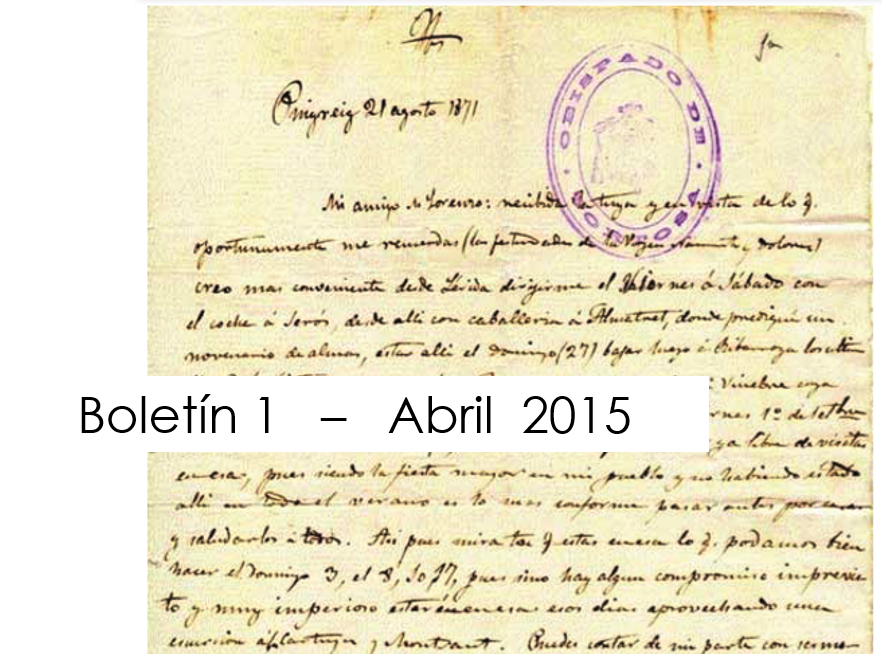 Puigreig 21 agosto 1871
OBISPADO DE TORTOSA
Mi amigo D. Lorenzo: recibida la tuya y en vista de lo q.
oportunamente me recuerdas (las festividades de la Virgen y Dolores)
creo mas conveniente desde Lérida dirigirme el Viernes ó Sábado con
el coche á Serós, desde alli con caballeria á Almatret, donde prediqué un
novenario de almas, estar alli el Domingo (27) bajar luego á Ribarroja
Vinebre cuya
Viernes 1º de Setbre
Boletín 1 – Abril 2015
ya libre de visitas
en esa, pues siendo la fiesta mayor en mi pueblo y no habiendo estado
alli en todo el verano es lo mas conforme pasar antes por casa
y saludarlos á todos. Asi pues mira tu q estas en esa lo q. podamos bien
hacer el Domingo 3, el 8, 10 y 17, pues sino hay algun compromiso imprevis-
to y muy imperioso estaré en esa esos dias aprovechando una
escursion á y Montsant. Puedes contar de mi parte con sermo-